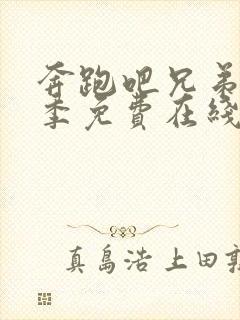 奔跑吧兄弟
季免費在綫
真島浩 上田敦